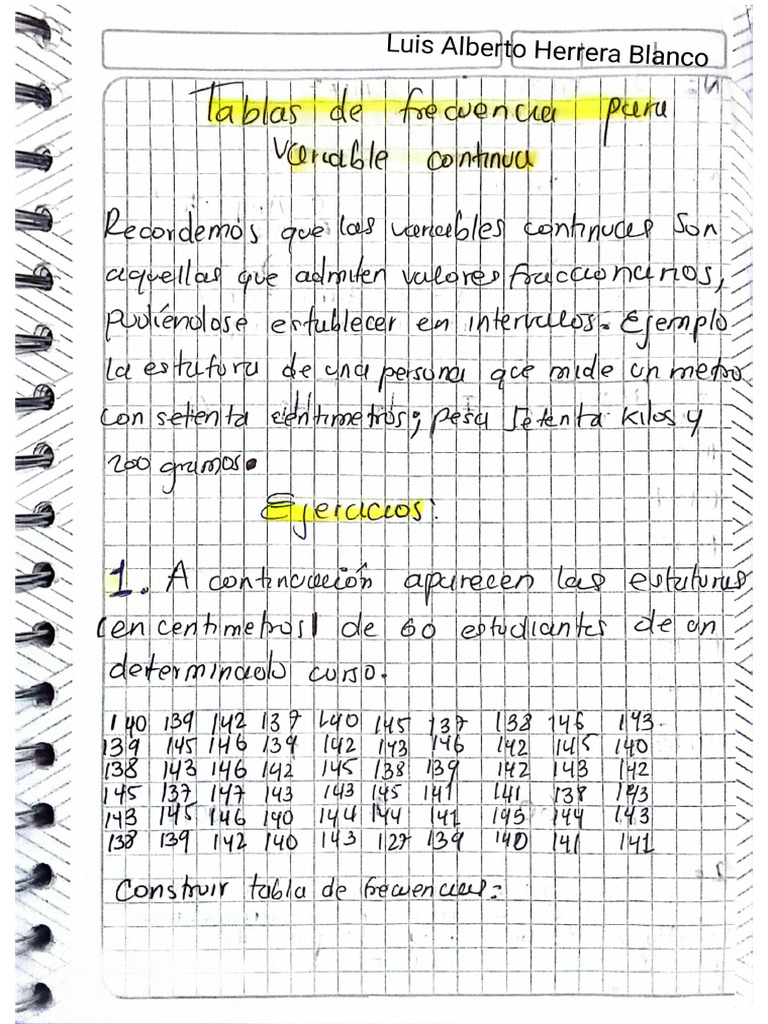 Luis Alberto Herrera Blanco
Tablas de frecuencia para
variable continua
Recordemos que las variables continuas son
aquellas que admiten valores fraccionarios,
pudiéndose establecer en intervalos. Ejemplo
la estatura de una persona que mide un metro
con setenta centimetros; pesa setenta kilos y
200 gramos.
Ejercicios:
1. A continuación aparecen las estaturas
(en centimetros) de 60 estudiantes de un
determinado curso.
140 139 142 137 140 145 137 138 146 143
139 145 146 139 142 143 146 142 145 140
138 143 146 142 145 138 139 142 143 142
145 137 147 143 143 145 141 141 138 143
143 145 146 140 144 144 141 145 144 143
138 139 142 140 143 127 139 140 141 141
Construir tabla de frecuencias: